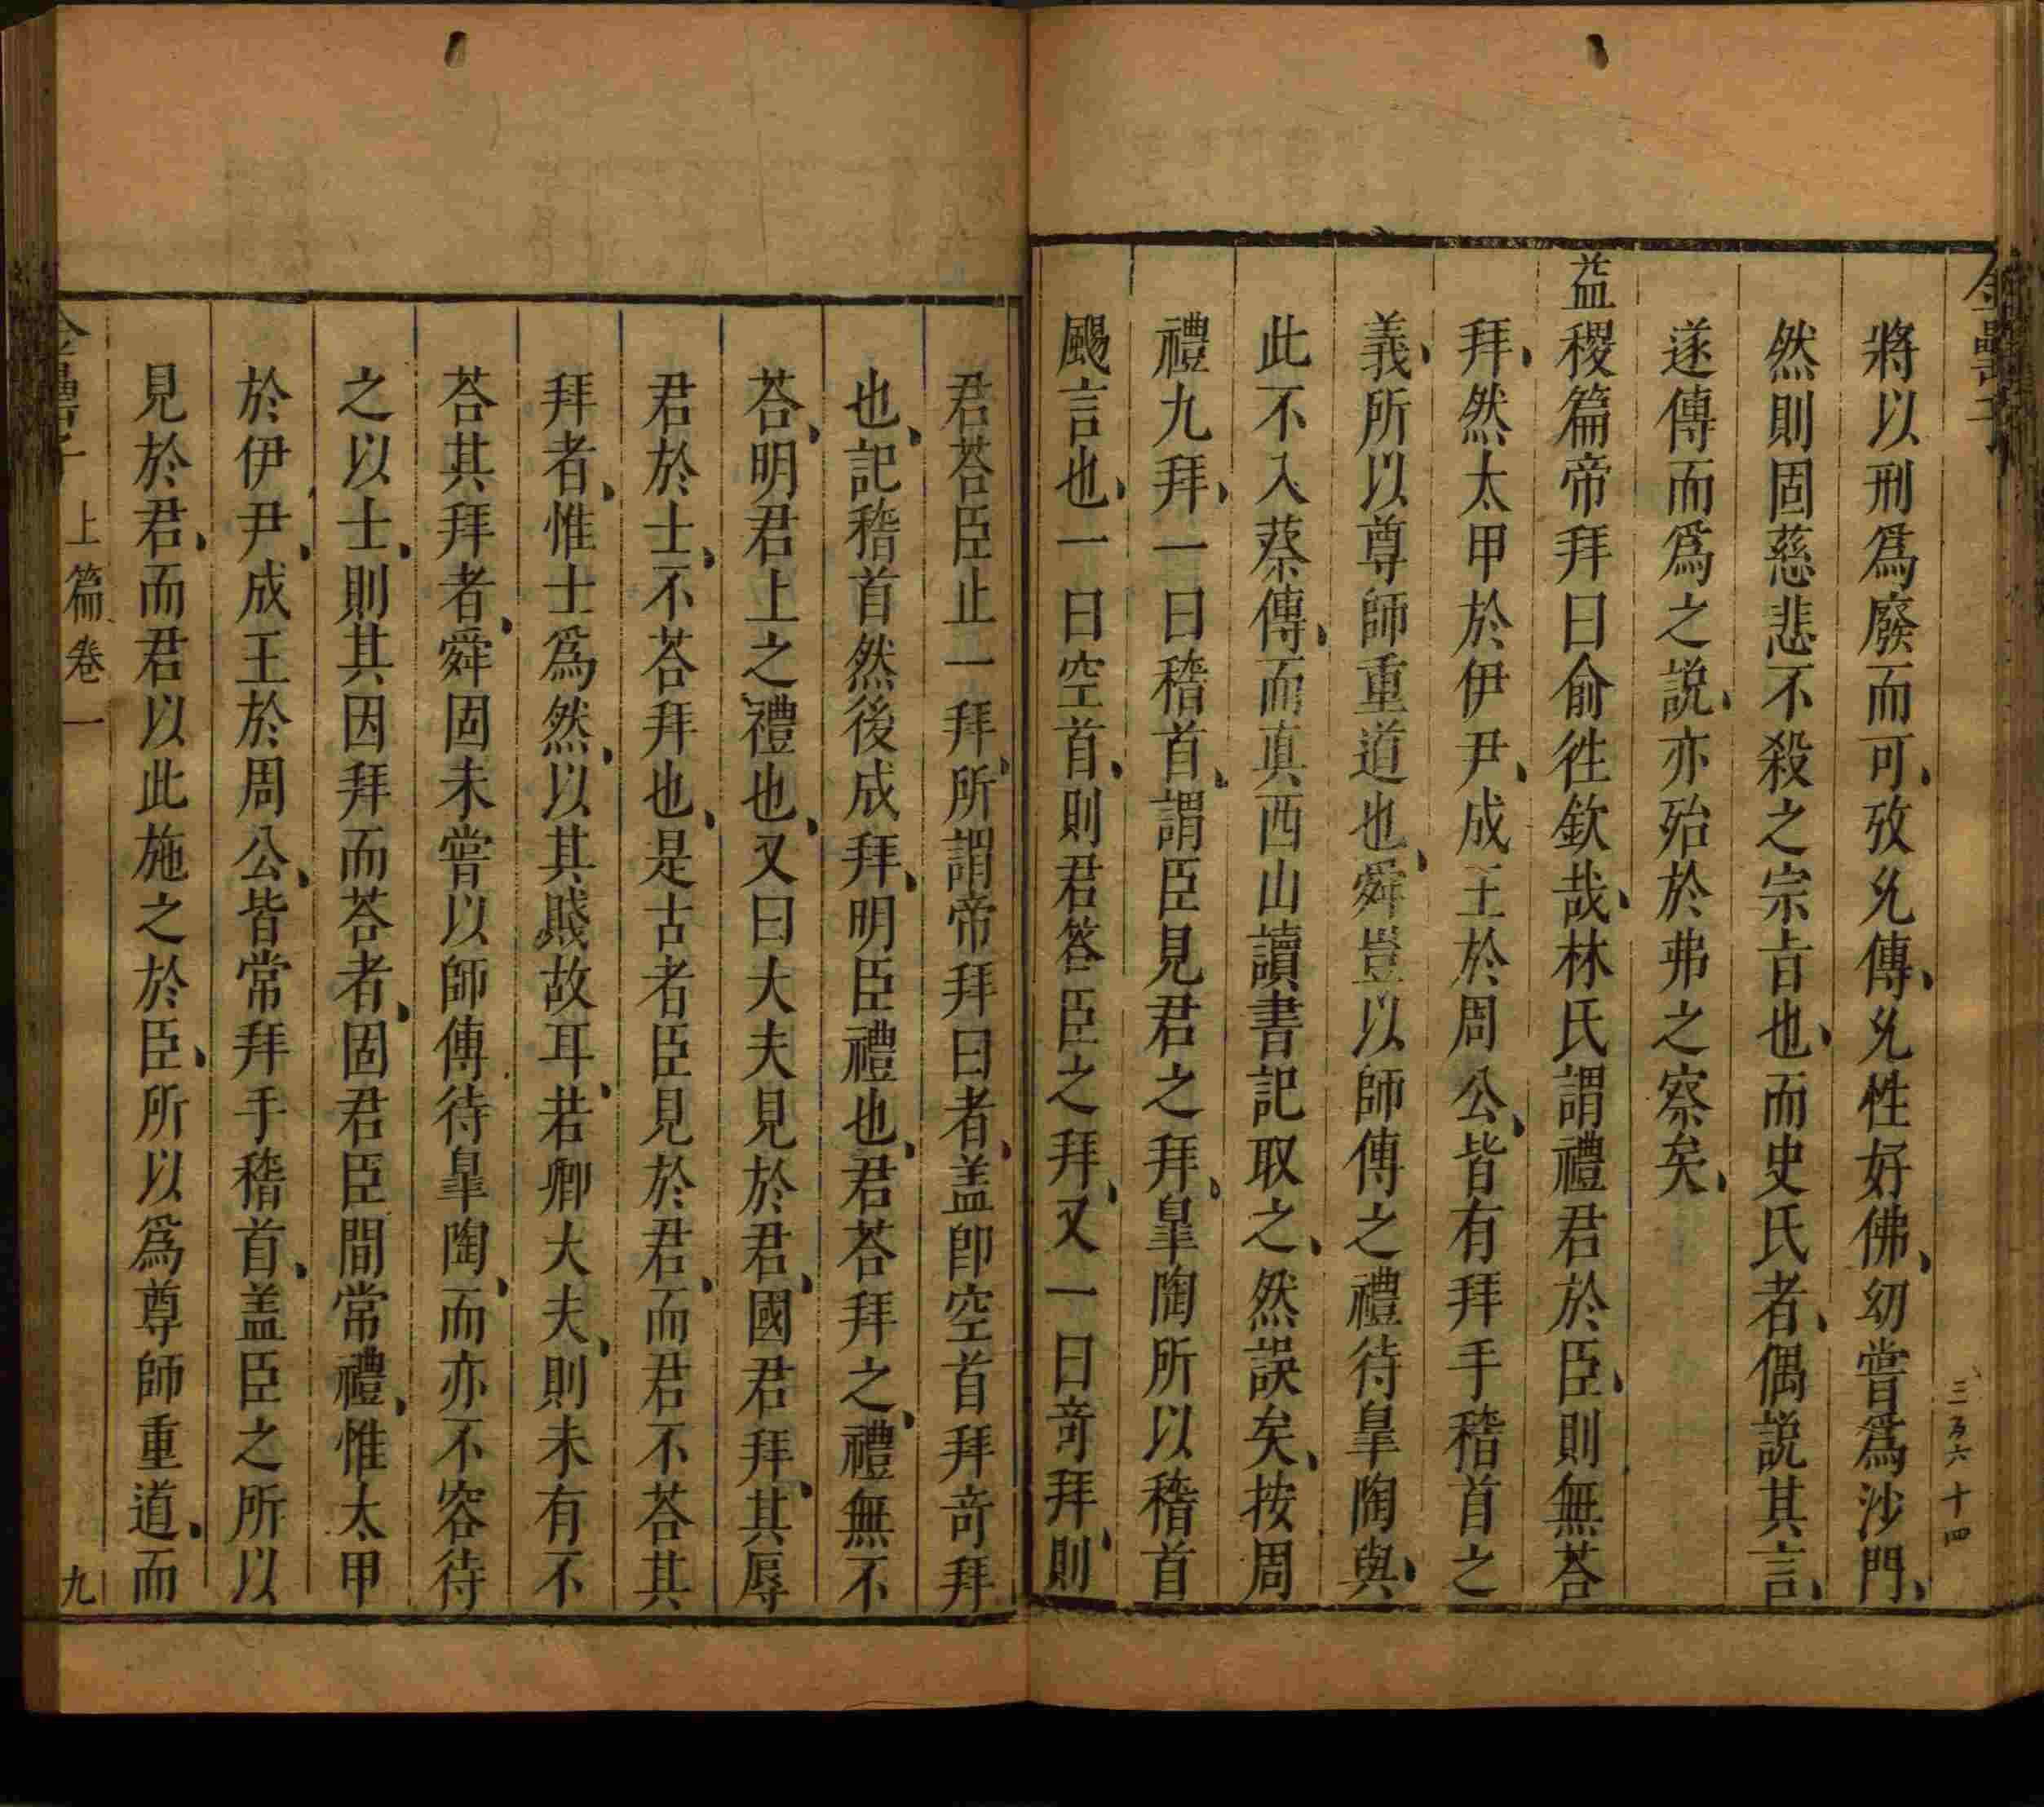 將以刑爲廢而可、攷允傳、允性好佛、幼嘗爲沙門、
然則固慈悲不殺之宗㫖也、而史氏者、偶説其言、
遂傳而爲之説、亦殆於弗之察矣、
益稷篇帝拜曰俞徃欽哉、林氏謂禮君於臣、則無荅
拜、然太甲於伊尹、成王於周公、皆有拜手稽首之
義、所以尊師重道也、舜豈以師傅之禮待皐陶與、
此不入蔡傳、而真西山讀書記取之、然誤矣、按周
禮九拜、一曰稽首、謂臣見君之拜、皐陶所以稽首
颺言也、一曰空首、則君答臣之拜、又一曰竒拜、則
君荅臣止一拜、所謂帝拜曰者、盖卽空首拜竒拜
也、記稽首然後成拜、明臣禮也、君荅拜之、禮無不
荅、明君上之禮也、又曰大夫見於君、國君拜、其辱
君於士、不荅拜也、是古者臣見於君、而君不荅其
拜者、惟士爲然、以其賤故耳、若卿大夫、則未有不
荅其拜者、舜固未嘗以師傅待皐陶、而亦不容待
之以士、則其因拜而荅者、固君臣間常禮、惟太甲
於伊尹、成王於周公、皆常拜手稽首、盖臣之所以
見於君、而君以此施之於臣、所以爲尊師重道、而
上篇卷一
九